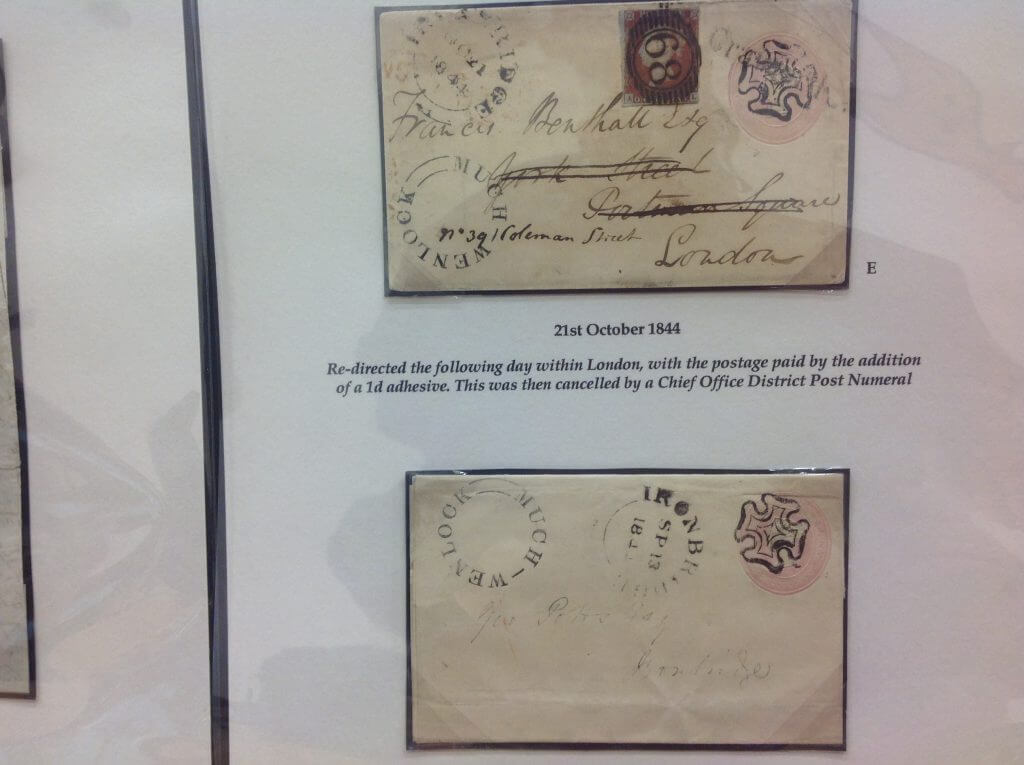 IRONBRIDGE
68
Francis Benthall Esq
York Street
Portman Square
No 39 Coleman Street
London
MUCH WENLOCK
E
21st October 1844
Re-directed the following day within London, with the postage paid by the addition
of a 1d adhesive. This was then cancelled by a Chief Office District Post Numeral
MUCH-WENLOCK
IRONBR
SP 13
Esq